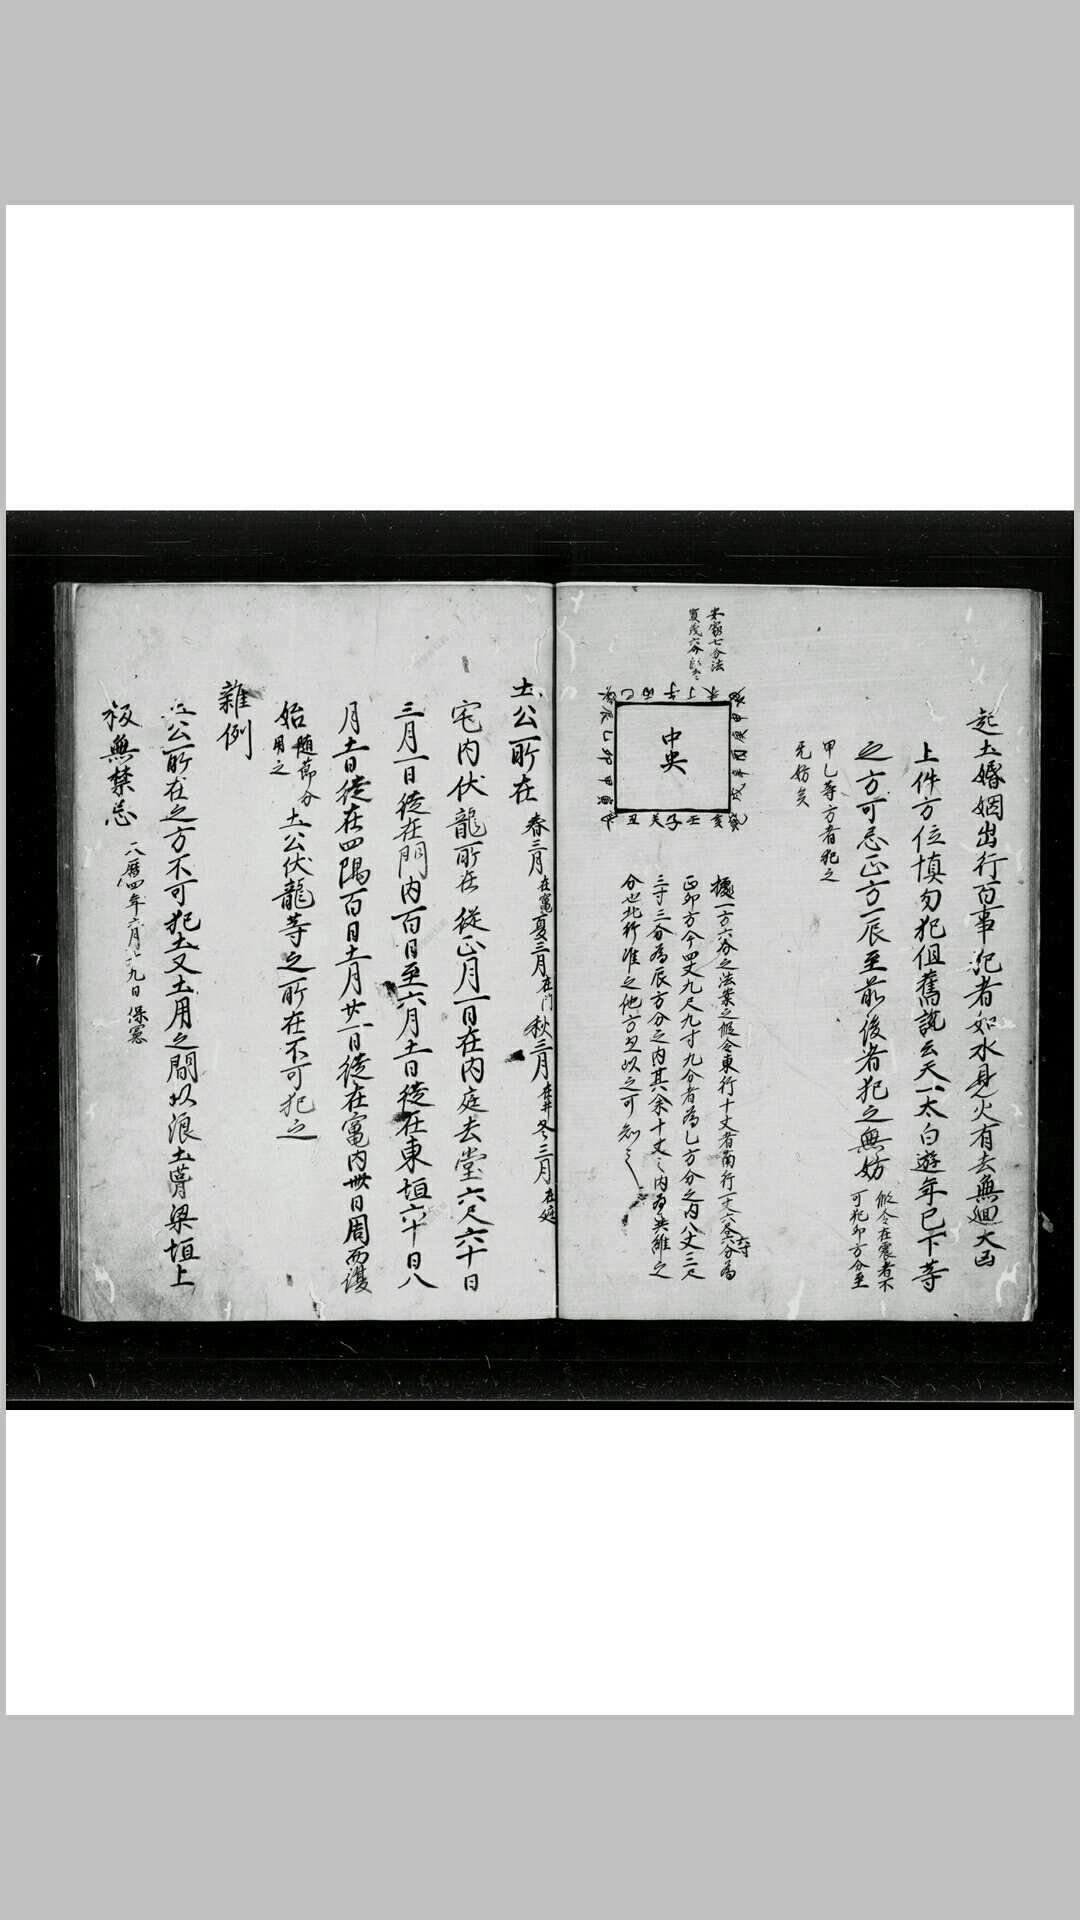 起土婚姻出行百事犯者如水見火有去無廻大凶
上件方位慎勿犯但舊説云天一太白遊年已下等
之方可忌正方一辰至前後者犯之無妨
假令在震者不
可犯卯方分至
甲乙等方者犯之
无妨矣
安家七分法
中央
據一方六分之法案之假令東行十丈者南行一丈六寸六分為
正卯方今四丈九尺九寸九分者為乙方分之内八丈三尺
三寸三分為辰方分之内其余十丈之内為巽維之
分也北行准之他方至以之可知之
土公所在 春三月在竈夏三月在門秋三月在井冬三月在庭
宅内伏龍所在 從正月一日在内庭去堂六尺六十日
三月一日徙在門内百日至六月十一日徙在東垣六十日八
月十一日徙在四隅百日十一月廿一日徙在竈内卌日周而復
始
隨節分
用之
土公伏龍等之所在不可犯之
雜例
土公所在之方不可犯土又土用之間以浪土
梁垣上
禁忌
四年六月 九日 保憲